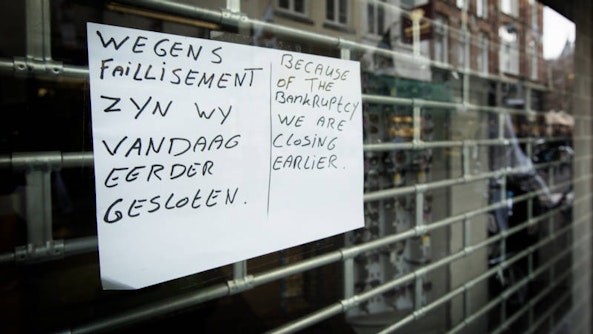 WEGENS
FAILLISEMENT
ZYN WY
VANDAAG
EERDER
GESLOTEN.
BECAUSE
OF THE
BANKRUPTCY
WE ARE
CLOSING
EARLIER.